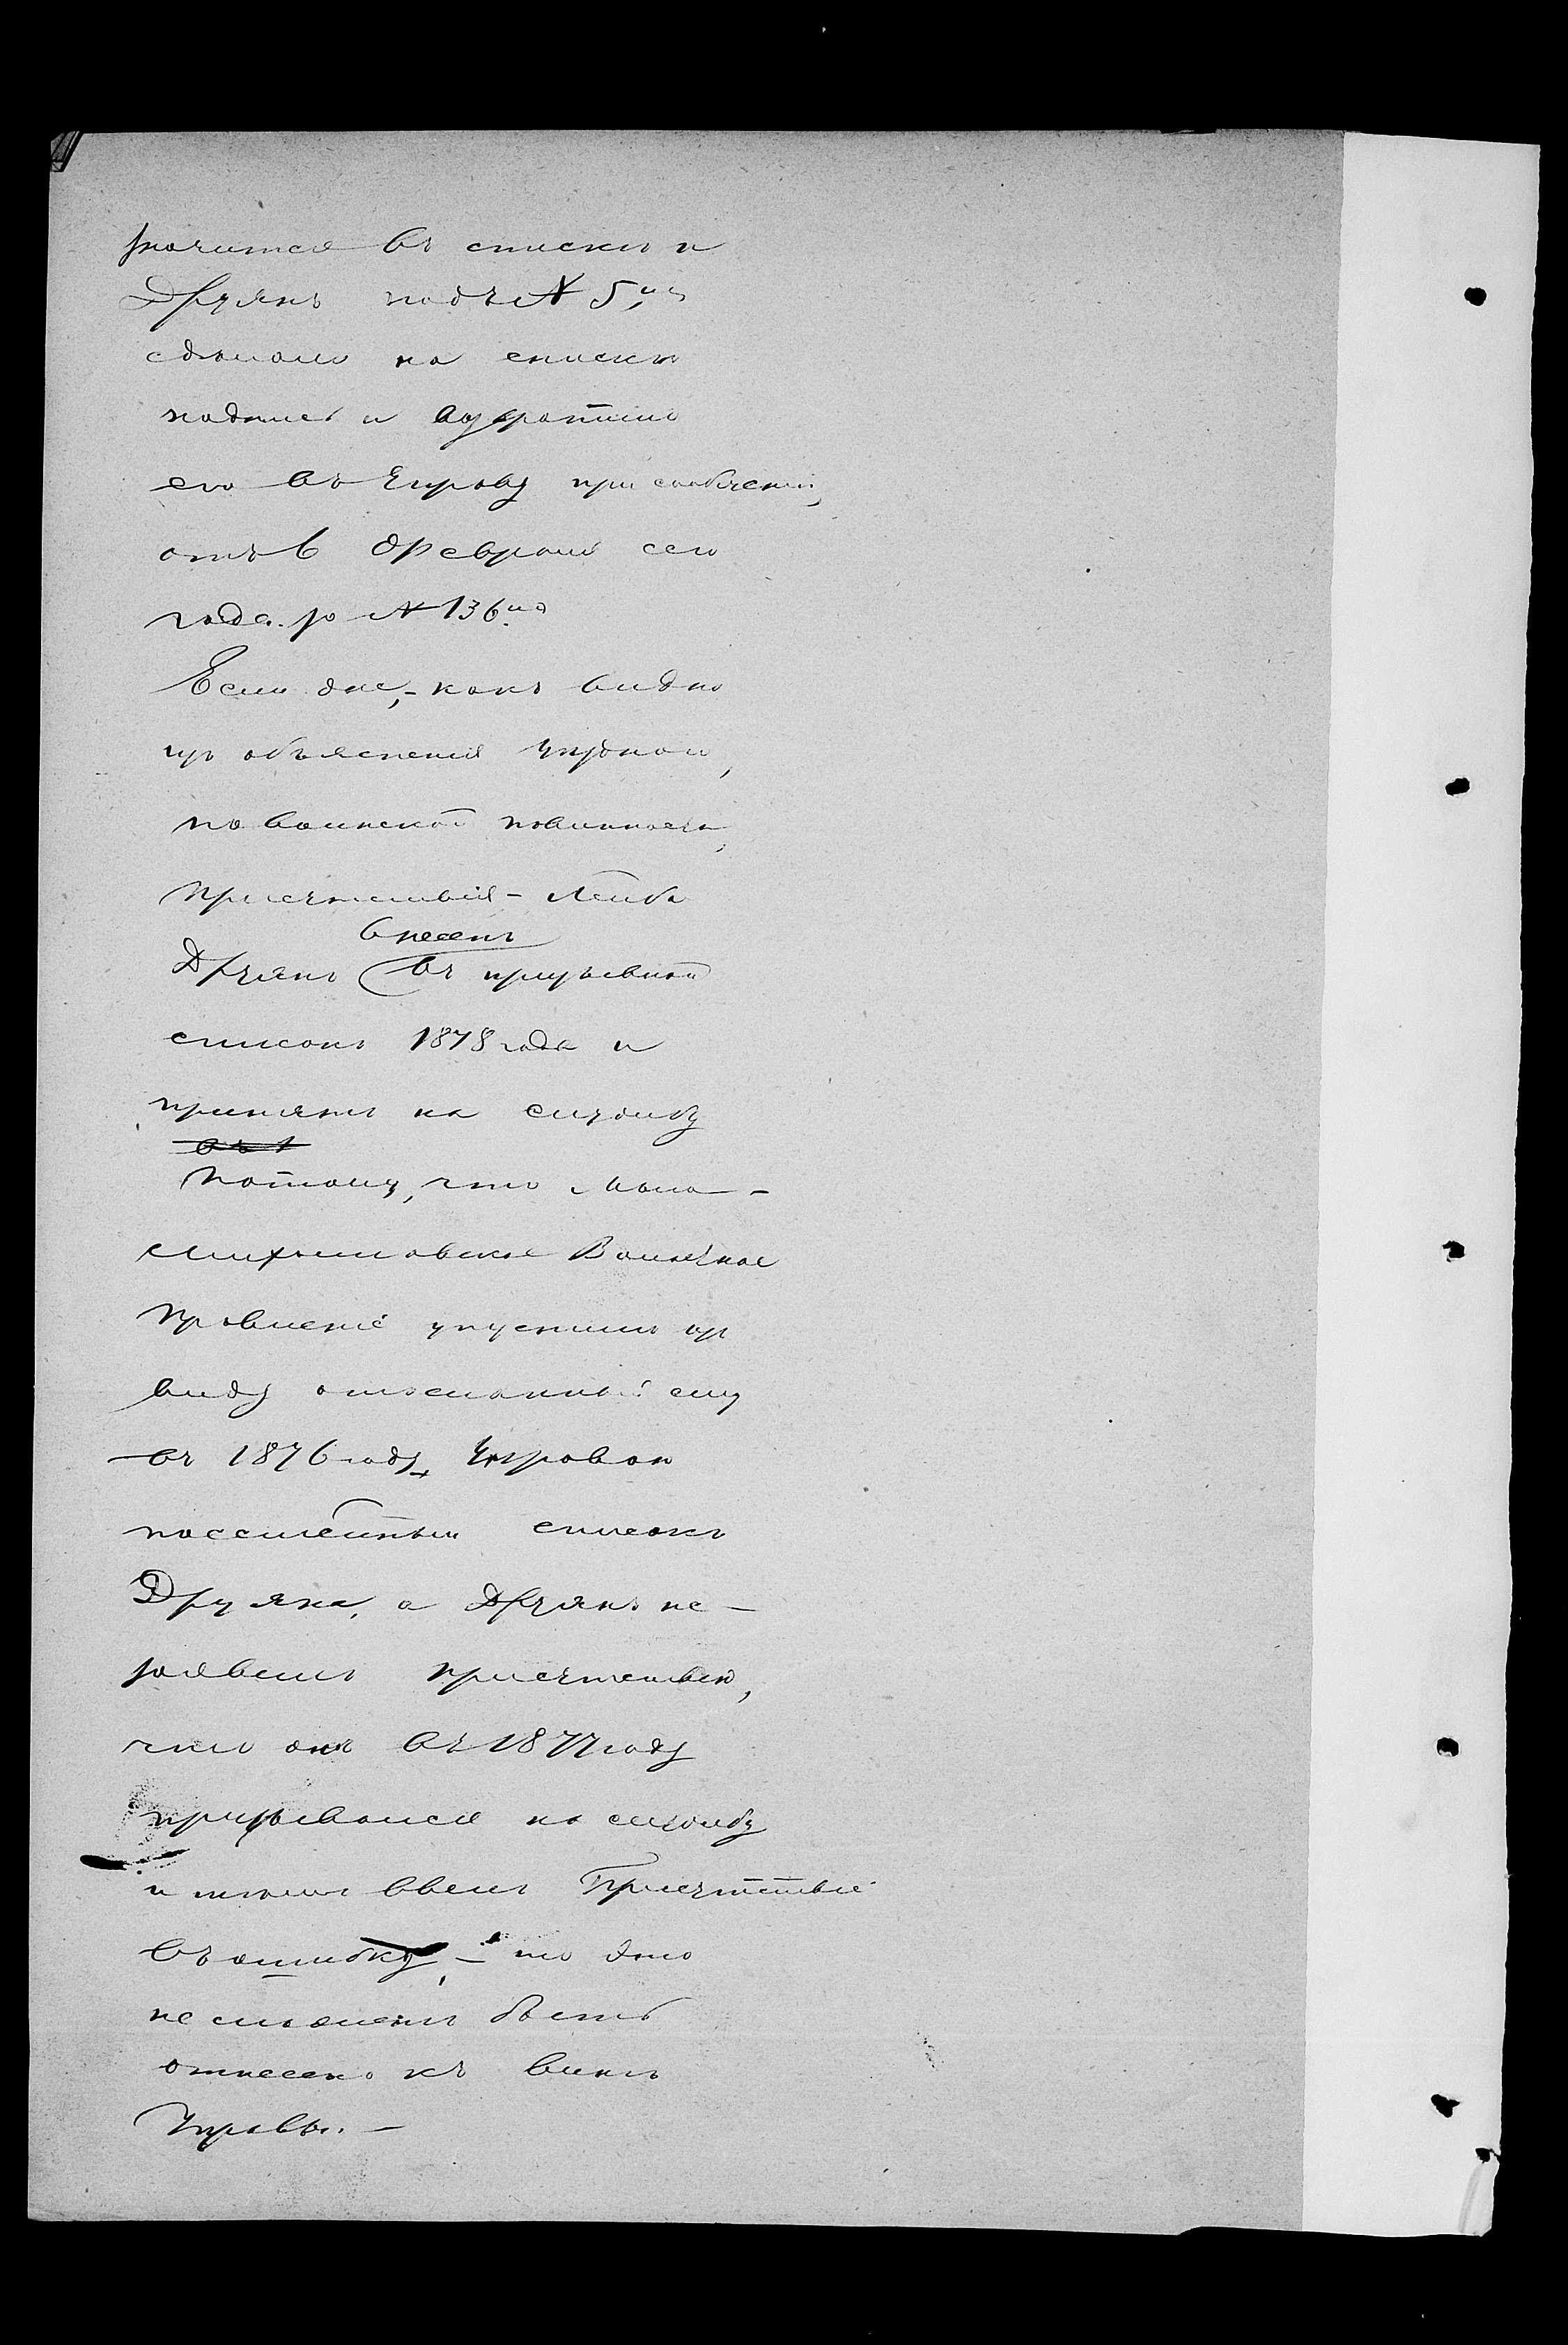 значится въ списки и
Друянъ подъ № 5мъ
сдѣлало на спискѣ
надпись и возвратило
его въ Управу при сообщеніи,
отъ 6 Февраля сего
года за № 136мъ
Если же, - какъ видно
изъ объясненія Уѣзднаго,
по воинской повинности,
Присутствія - Лейба
внесенъ
Друянъ въ призывной
списокъ 1878 года и
принятъ на службу
потому, что Мало-
Михайловское Волостное
Правленіе упустило изъ
виду отосланный ему
въ 1876 году Управою
посемейный списокъ
Друяна, а Друянъ не-
заявилъ присутствію,
что онъ въ 1877 году
призывался на службу
и тѣмъ ввелъ Присутствіе
въ ошибку, - то это
не можетъ быть
отнесено къ винѣ
Управы. -